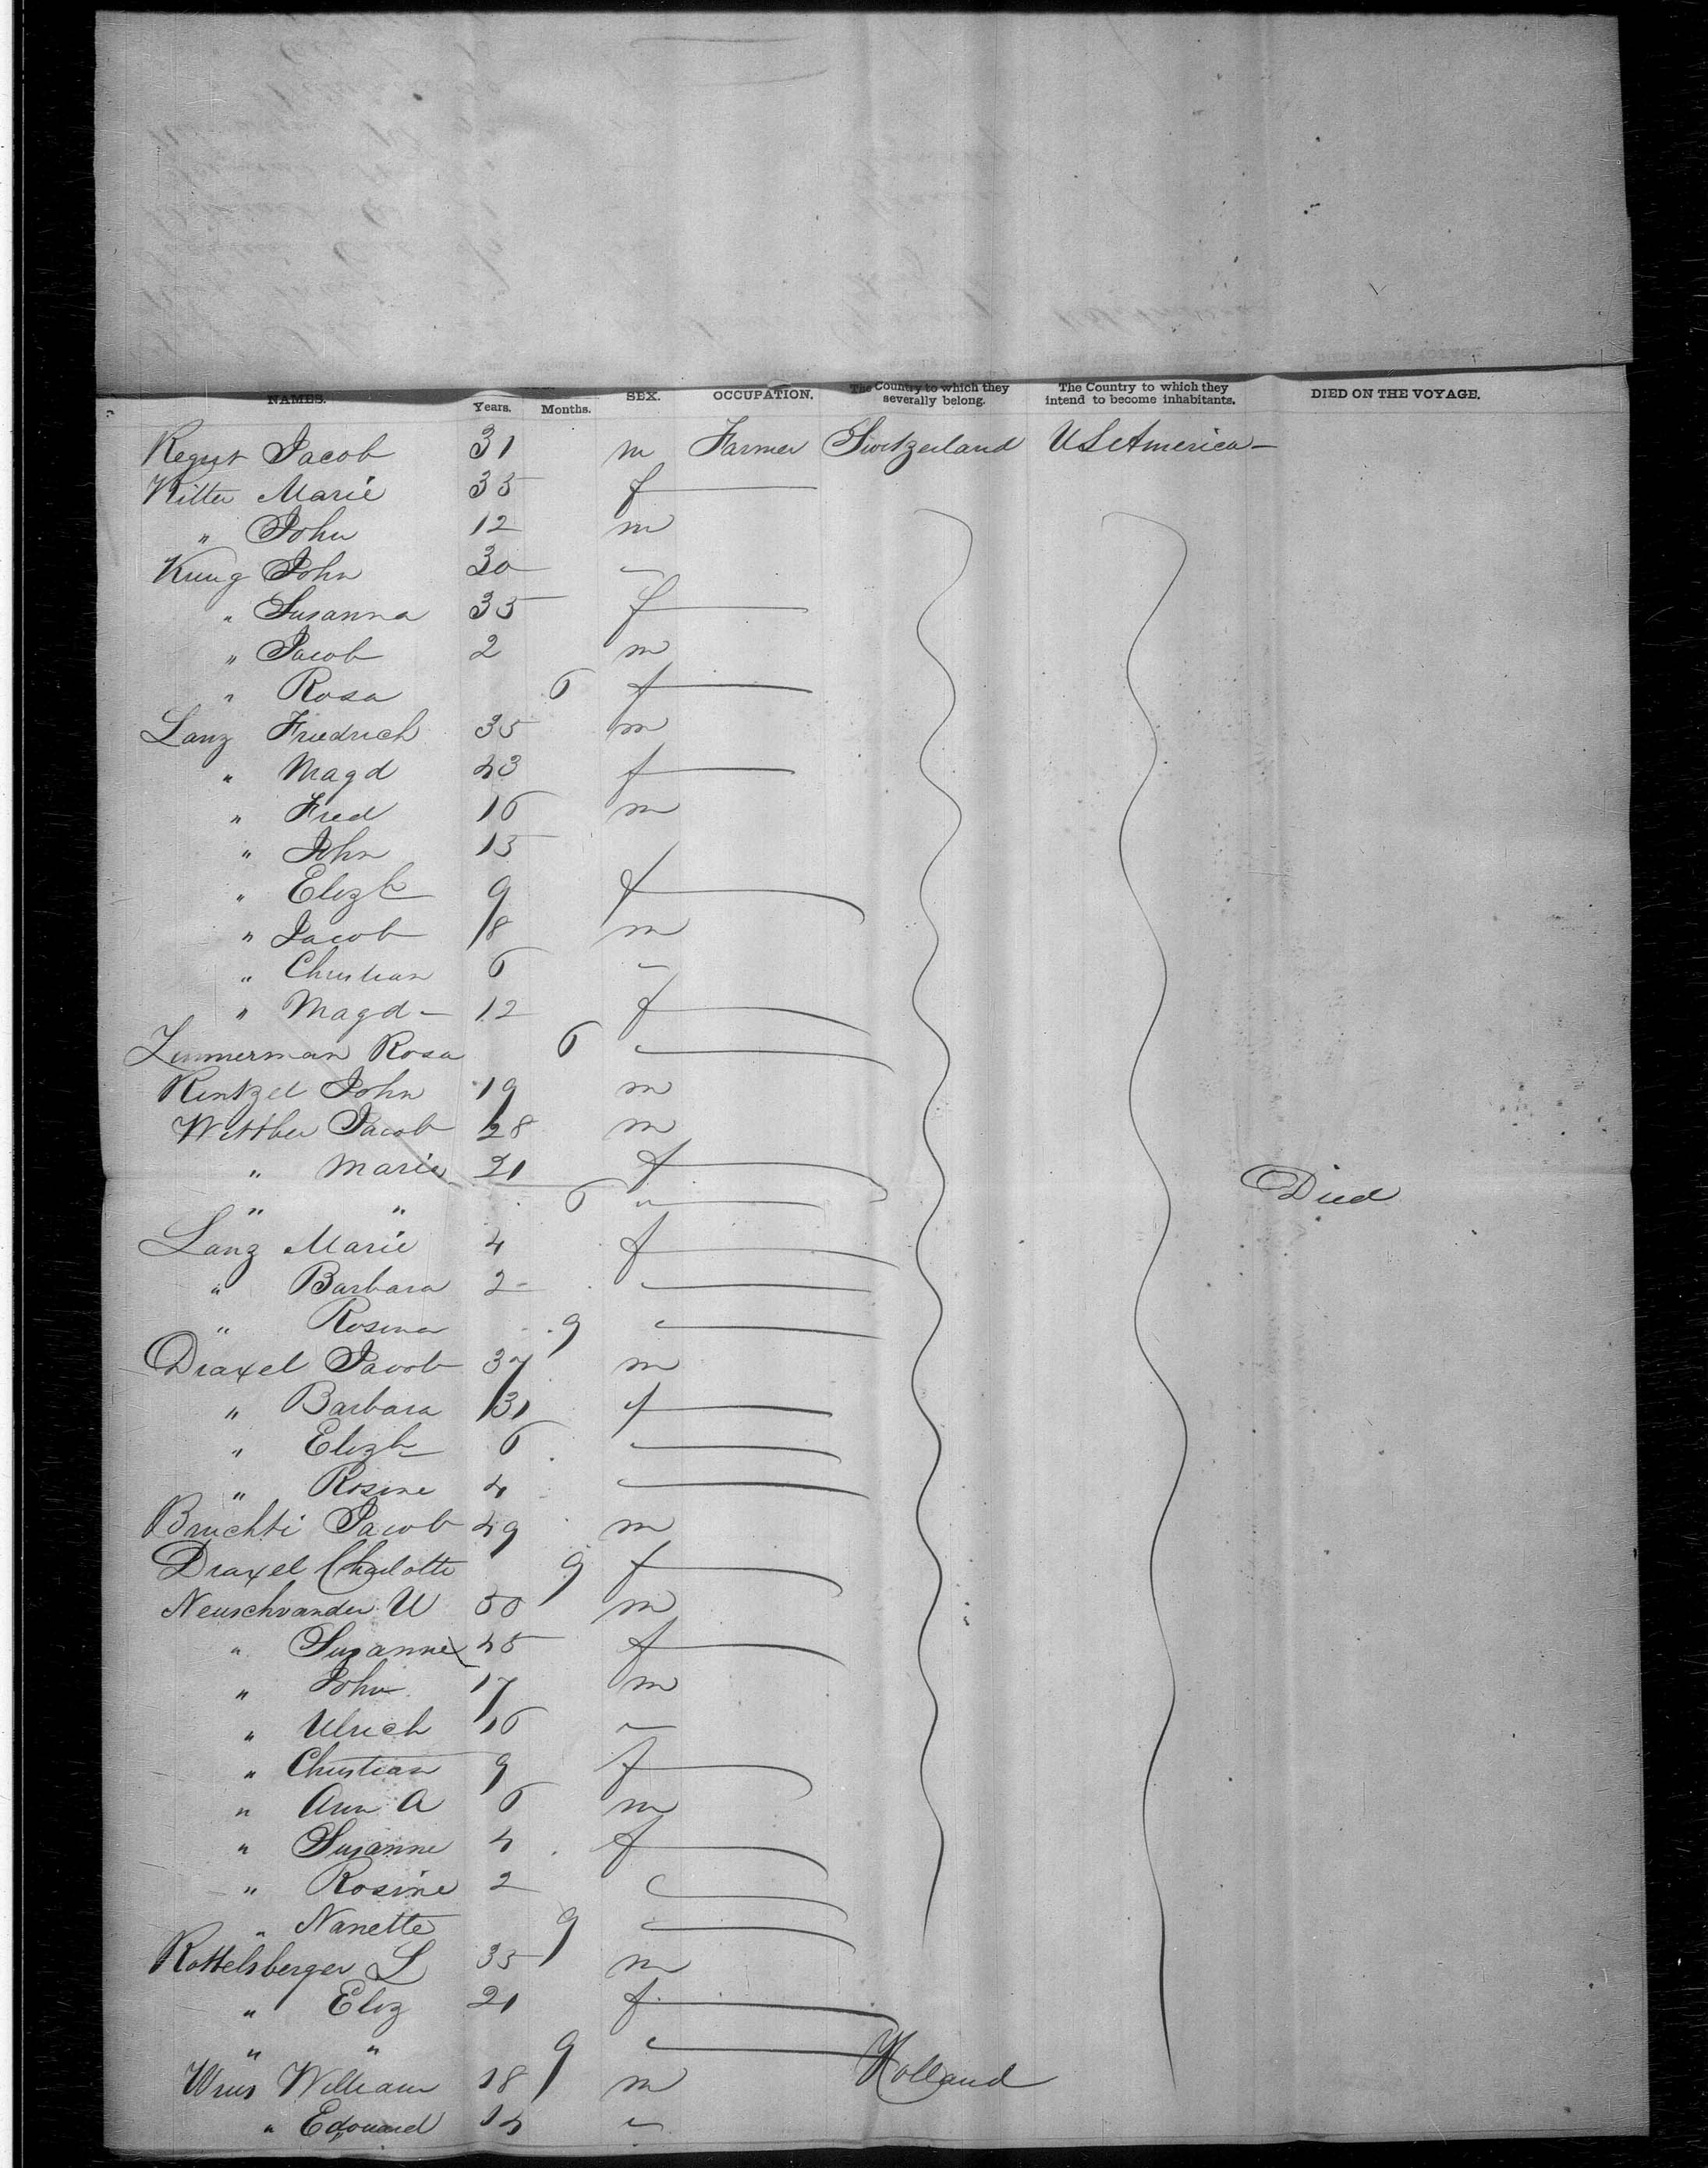 NAMES. Years. Months. SEX. OCCUPATION. The Country to which they severally belong. The Country to which they intend to become inhabitants. DIED ON THE VOYAGE.
Jacob 31 m Farmer Switzerland U S America —
Ritter Marie 35 f
" John 12 m
Kung John 30 "
" Susanna 35 f
" Jacob 2 m
" Rosa 6 f
Lanz Friedrich 35 m
" Magd 43 f
" Fred 16 m
" John 15
" Elizb 9 f
" Jacob 8 m
" Christian 6 "
" Magd — 12 f
Zimmerman Rosa 6 "
Rentzel John 19 m
Jacob 28 m
" Marie 21 f
" " 6 " Died
Lanz Marie 4 f
" Barbara 2 "
" Rosina 9 "
Draxel Jacob 37 m
" Barbara 31 f
" Elizb 6 "
" Rosine 4 "
Bruchti Jacob 49 m
Draxel Charlotte 9 f
Neuschvander U 50 m
" Suzanne 45 f
" John 17 m
" Ulrich 16 "
" Christian 9 f
" Ann A 6 m
" Suzanne 4 f
" Rosine 2 "
" Nanette 9 "
Rottelsberger L 35 m
" Eliz 21 f
" " 9 "
William 18 m Holland
" Edouard 14 "